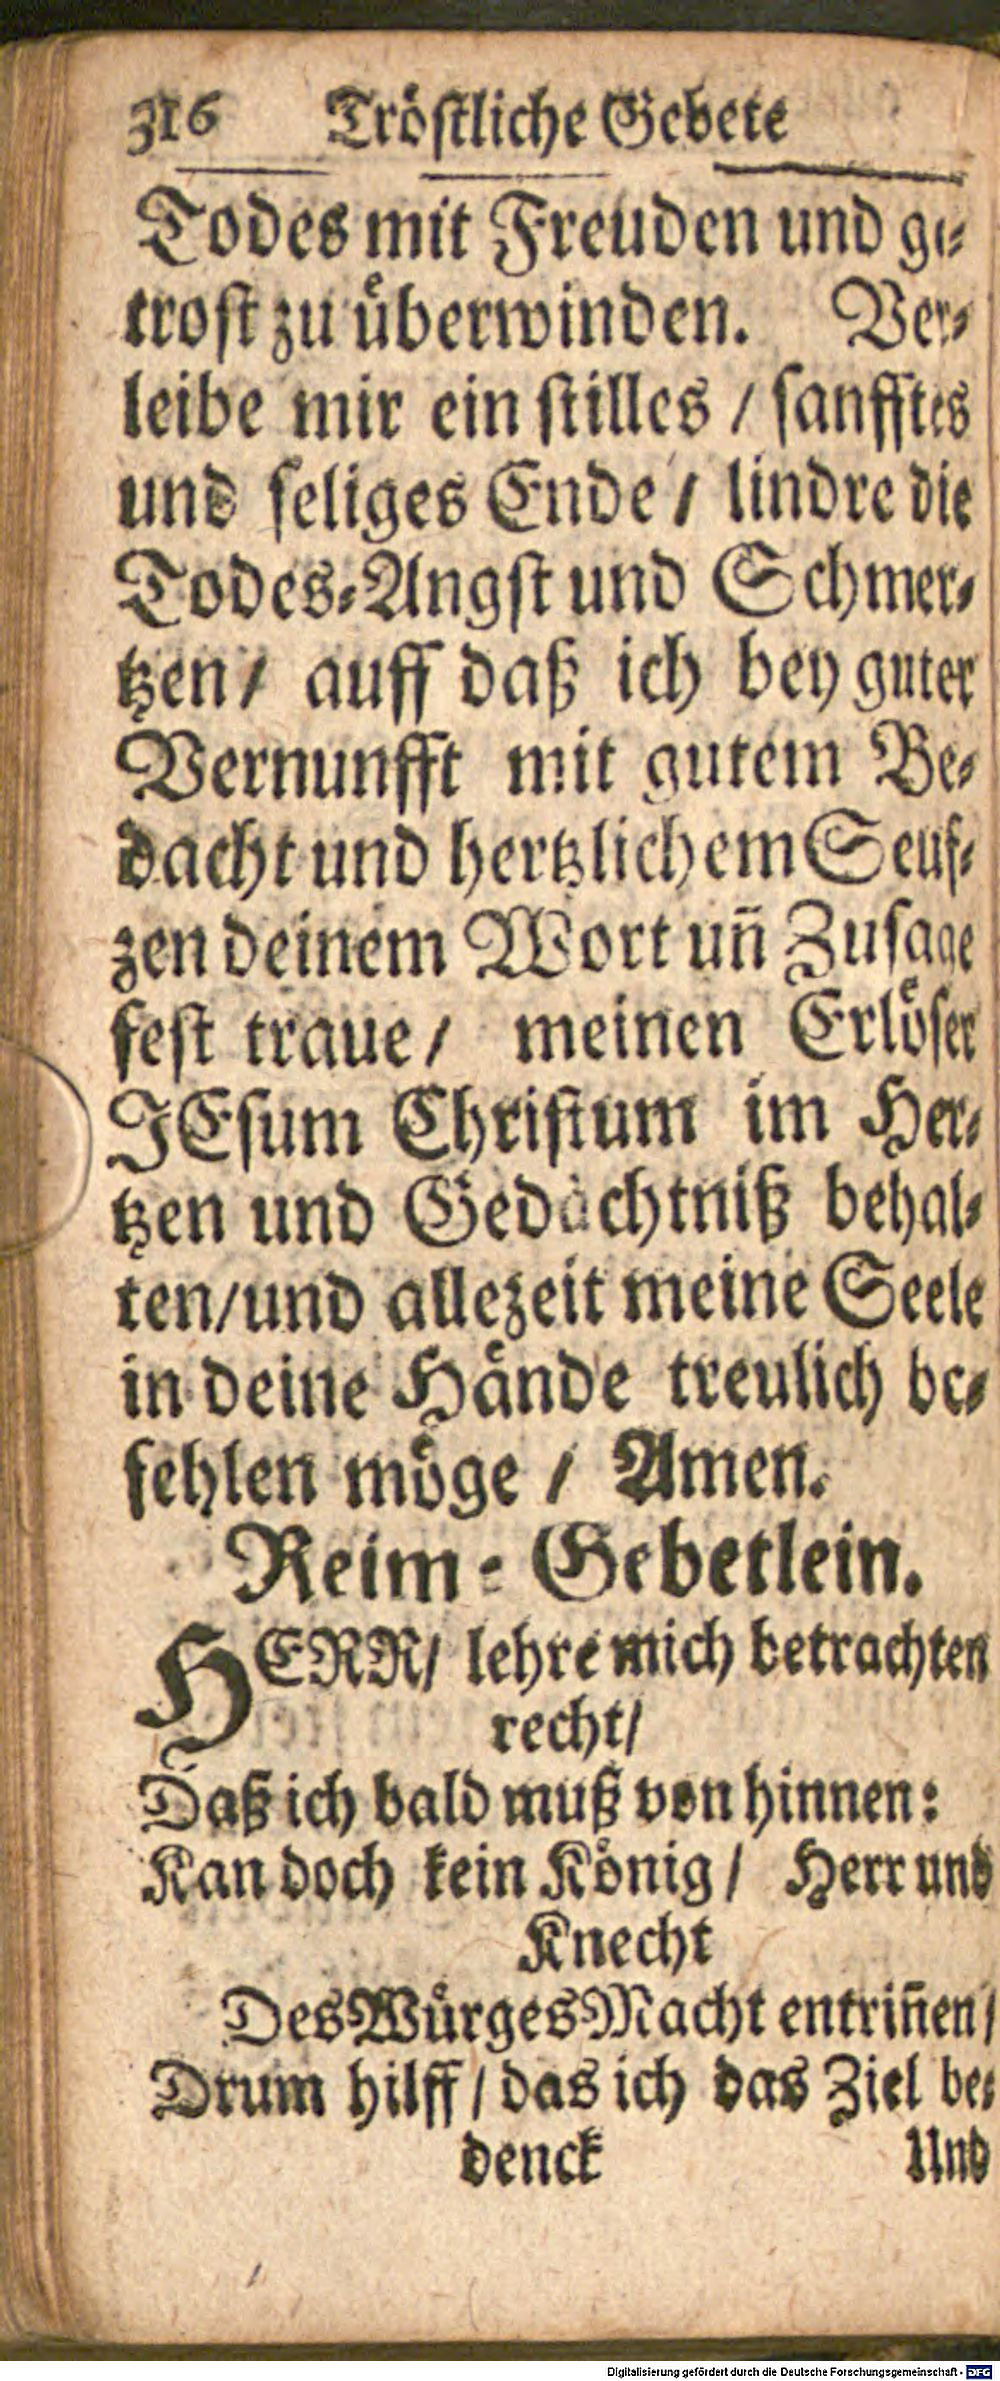 316 Tröstliche Gebete
Todes mit Freuden und ge-
trost zu überwinden. Ver-
leibe mir ein stilles / sanfftes
und seliges Ende / lindre die
Todes-Angst und Schmer-
tzen / auff daß ich bey guter
Vernunfft mit gutem Be-
dacht und hertzlichem Seuf-
zen deinem Wort uñ Zusage
fest traue / meinen Erlöser
JEsum Christum im Her-
tzen und Gedächtniß behal-
ten / und allezeit meine Seele
in deine Hände treulich be-
fehlen möge / Amen.
Reim-Gebetlein.
HERR / lehre mich betrachten
recht /
Daß ich bald muß von hinnen:
Kan doch kein König / Herr und
Knecht
Des Würges Macht entriñen /
Drum hilff / das ich das Ziel be-
denck
Und
Digitalisierung gefördert durch die Deutsche Forschungsgemeinschaft - DFG